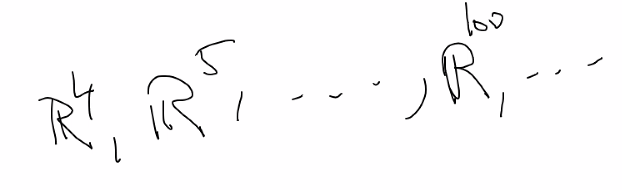 ℝ⁴, ℝ⁵, ---, ℝ¹⁰⁰, ---